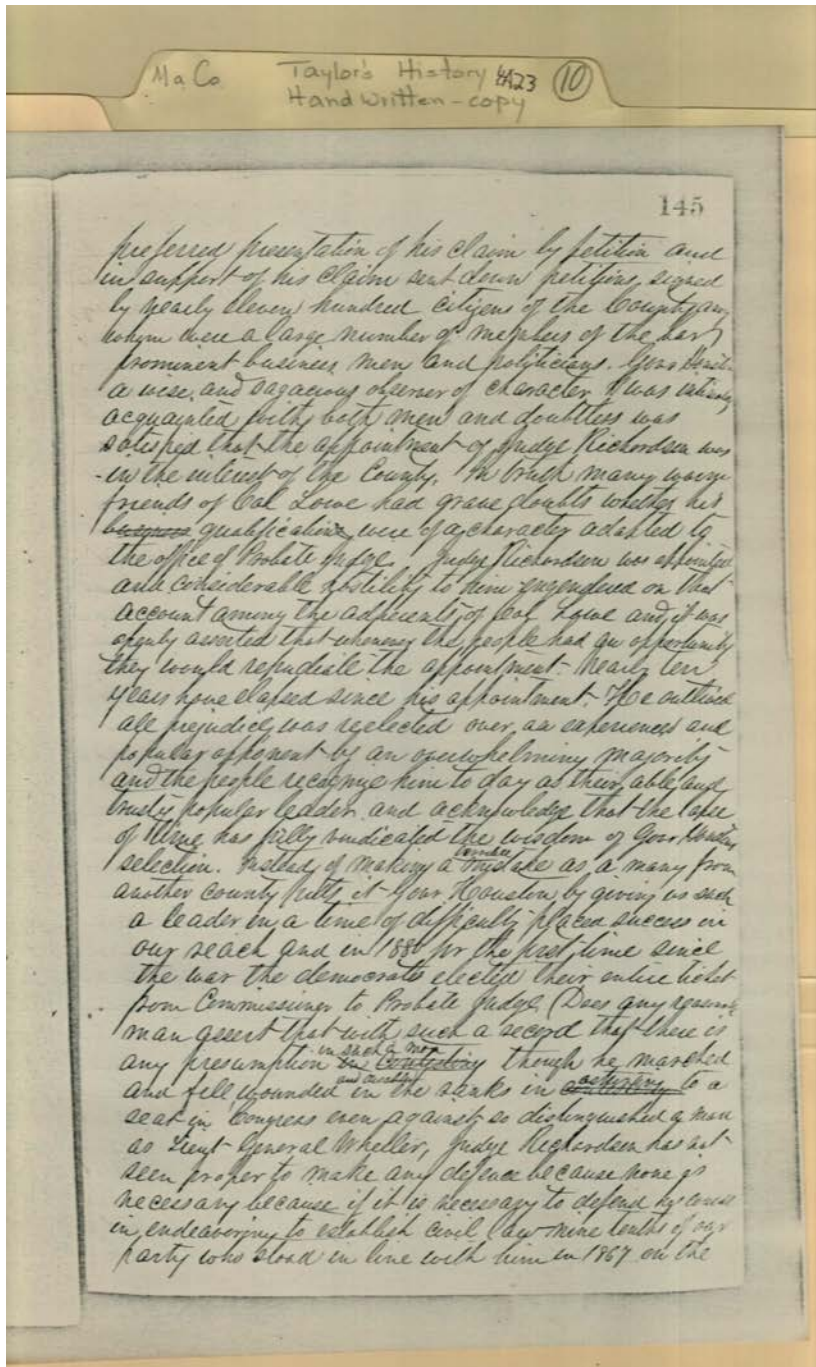 Ma Co Taylor's History 4A23 10
Handwritten - copy
145
preferred presentation of his claim by petition and
in support of his claim sent down petitions, signed
by nearly eleven hundred citizens of the County
whom were a large number of members of the bar
prominent business men and politicians. Gov Houston
a wise, and sagacious observer of character was intimately
acquainted with both men and doubtless was
satisfied that the appointment of Judge Richardson was
in the interest of the County. In truth many warm
friends of Col Lowe had grave doubts whether his
business qualifications were of a character adapted to
the office of Probate Judge. Judge Richardson was appointed
and considerable hostility to him engendered on that
account among the adherents of Col Lowe and it was
openly asserted that whenever the people had an opportunity
they would repudiate the appointment. Nearly ten
years have elapsed since his appointment. He outlived
all prejudice, was reelected over an experienced and
popular opponent by an overwhelming majority
and the people recognize him to day as their able and
trusty popular leader and acknowledge that the lapse
of time has fully vindicated the wisdom of Gov Houstons
selection. Instead of making a mistake as a man from
another county puts it Gov Houston by giving us such
a leader in a time of difficulty placed success in
our reach and in 1880 for the first time since
the war the democrats elected their entire ticket
from Commissioner to Probate Judge (Does any reasonable
man assert that with such a record that there is
any presumption in such a man though he marched
and fell wounded in the ranks in to a
seat in Congress even against so distinguished a man
as Lieut General Wheeler, Judge Richardson has not
seen proper to make any defence because none is
necessary because if it is necessary to defend his course
in endeavoring to establish civil law nine tenths of our
party who stood in line with him in 1867 on the